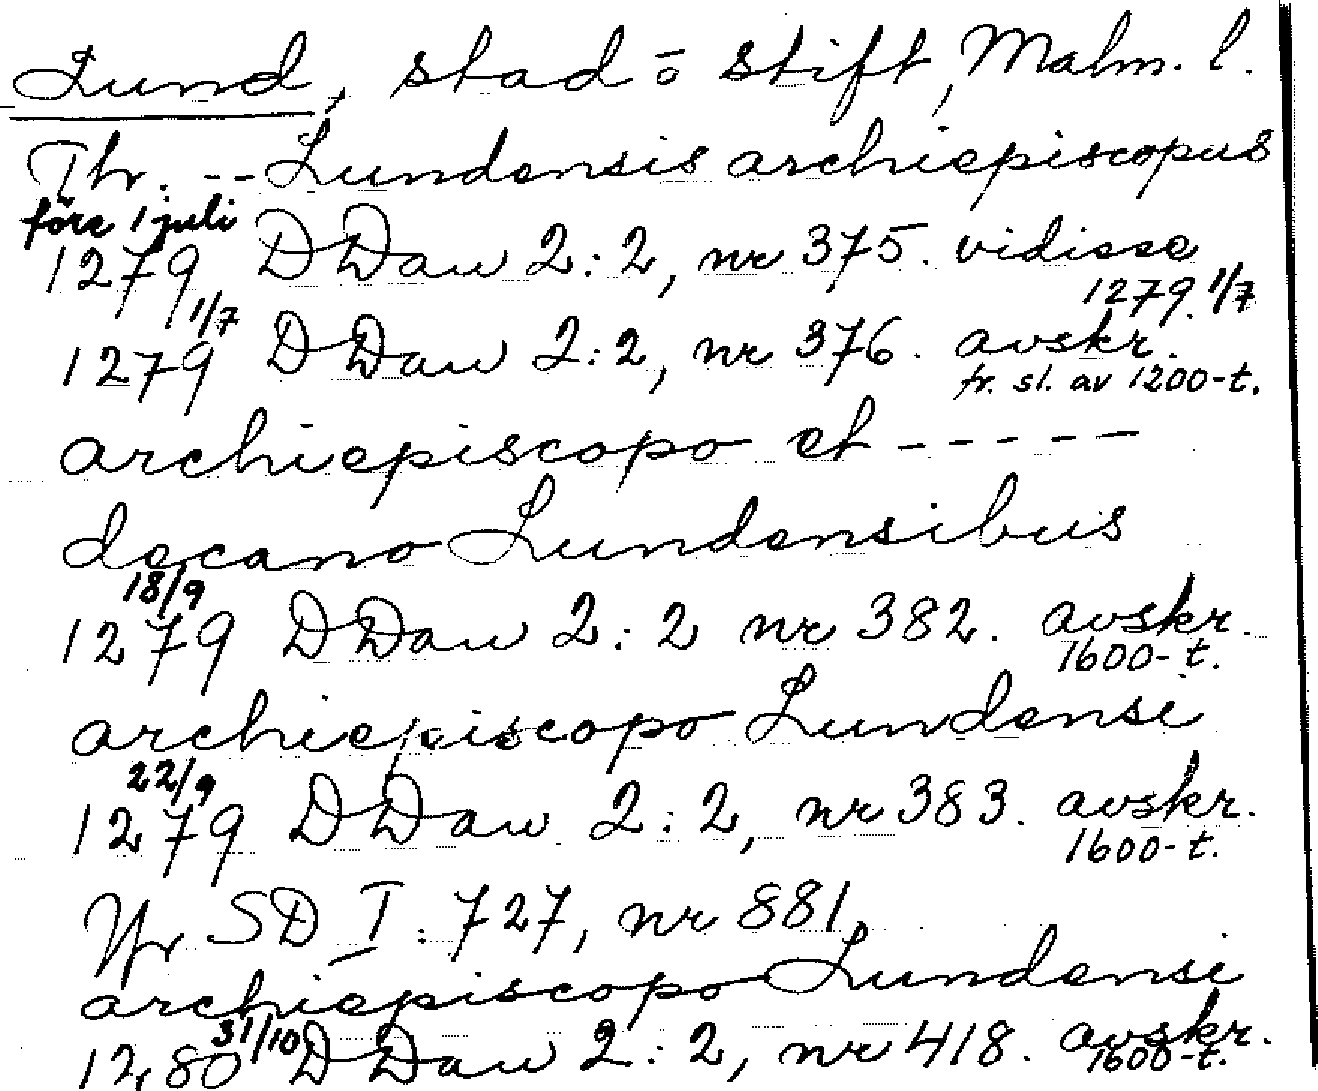 Lund, stad o stift, Malm. l.
Thr. -- Lundensis archiepiscopus
före 1 juli
1279 DDan 2:2, nr 375. vidisse
1279. 1/7
1/7
1279 DDan 2:2, nr 376. avskr.
fr. sl. av 1200-t.
archiepiscopo et -----
decano Lundensibus
18/9
1279 DDan 2:2 nr 382. avskr.
1600-t.
archiepiscopo Lundensi
22/9
1279 DDan 2:2, nr 383. avskr.
1600-t.
Jfr SD I: 727, nr 881.
archiepiscopo Lundensi
31/10
1280 DDan 2:2, nr 418. avskr.
1600-t.